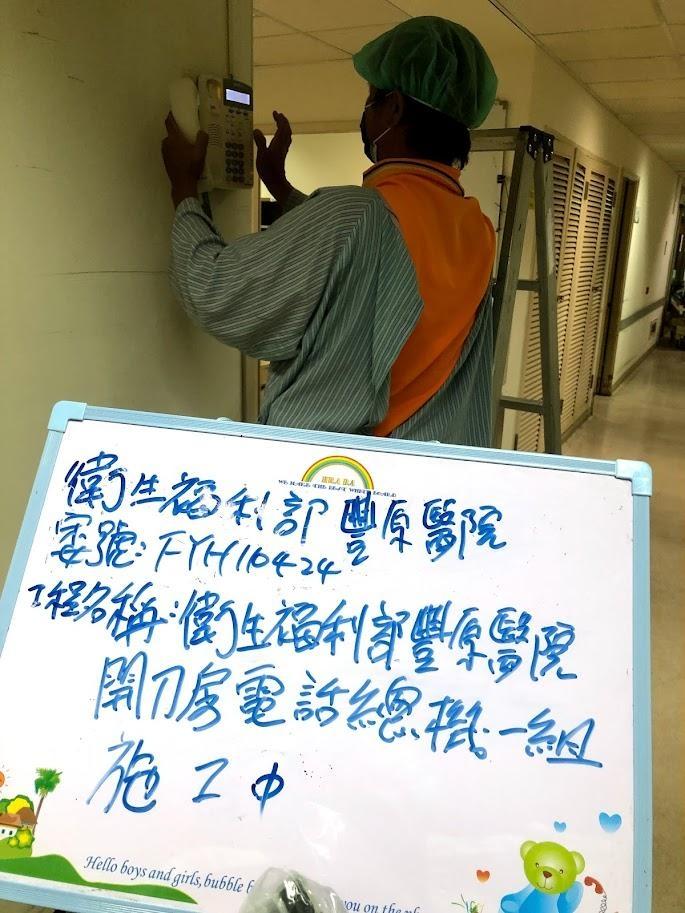 衛生福利部豐原醫院
案號:FYH110424
工程名稱:衛生福利部豐原醫院
開刀房電話總機一組
施工中
Hello boys and girls, bubble you on the